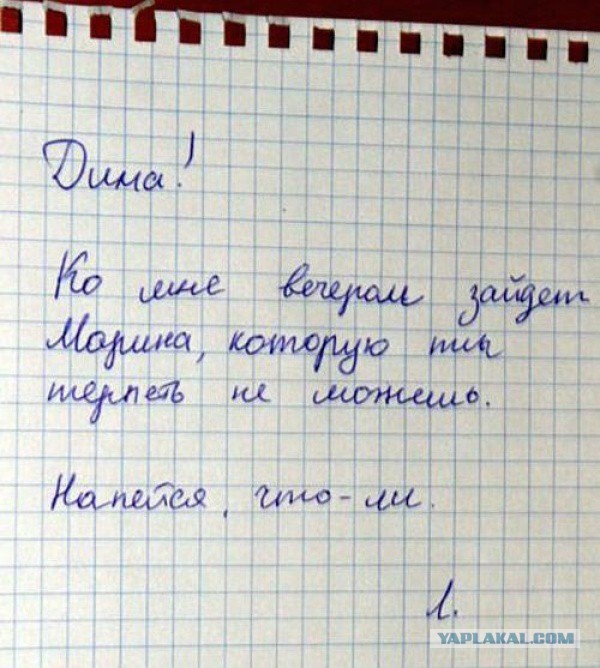 Дима!
Ко мне вечером зайдет
Марина, которую ты
терпеть не можешь.
Напейся, что-ли.
Л.
YAPLAKAL.COM